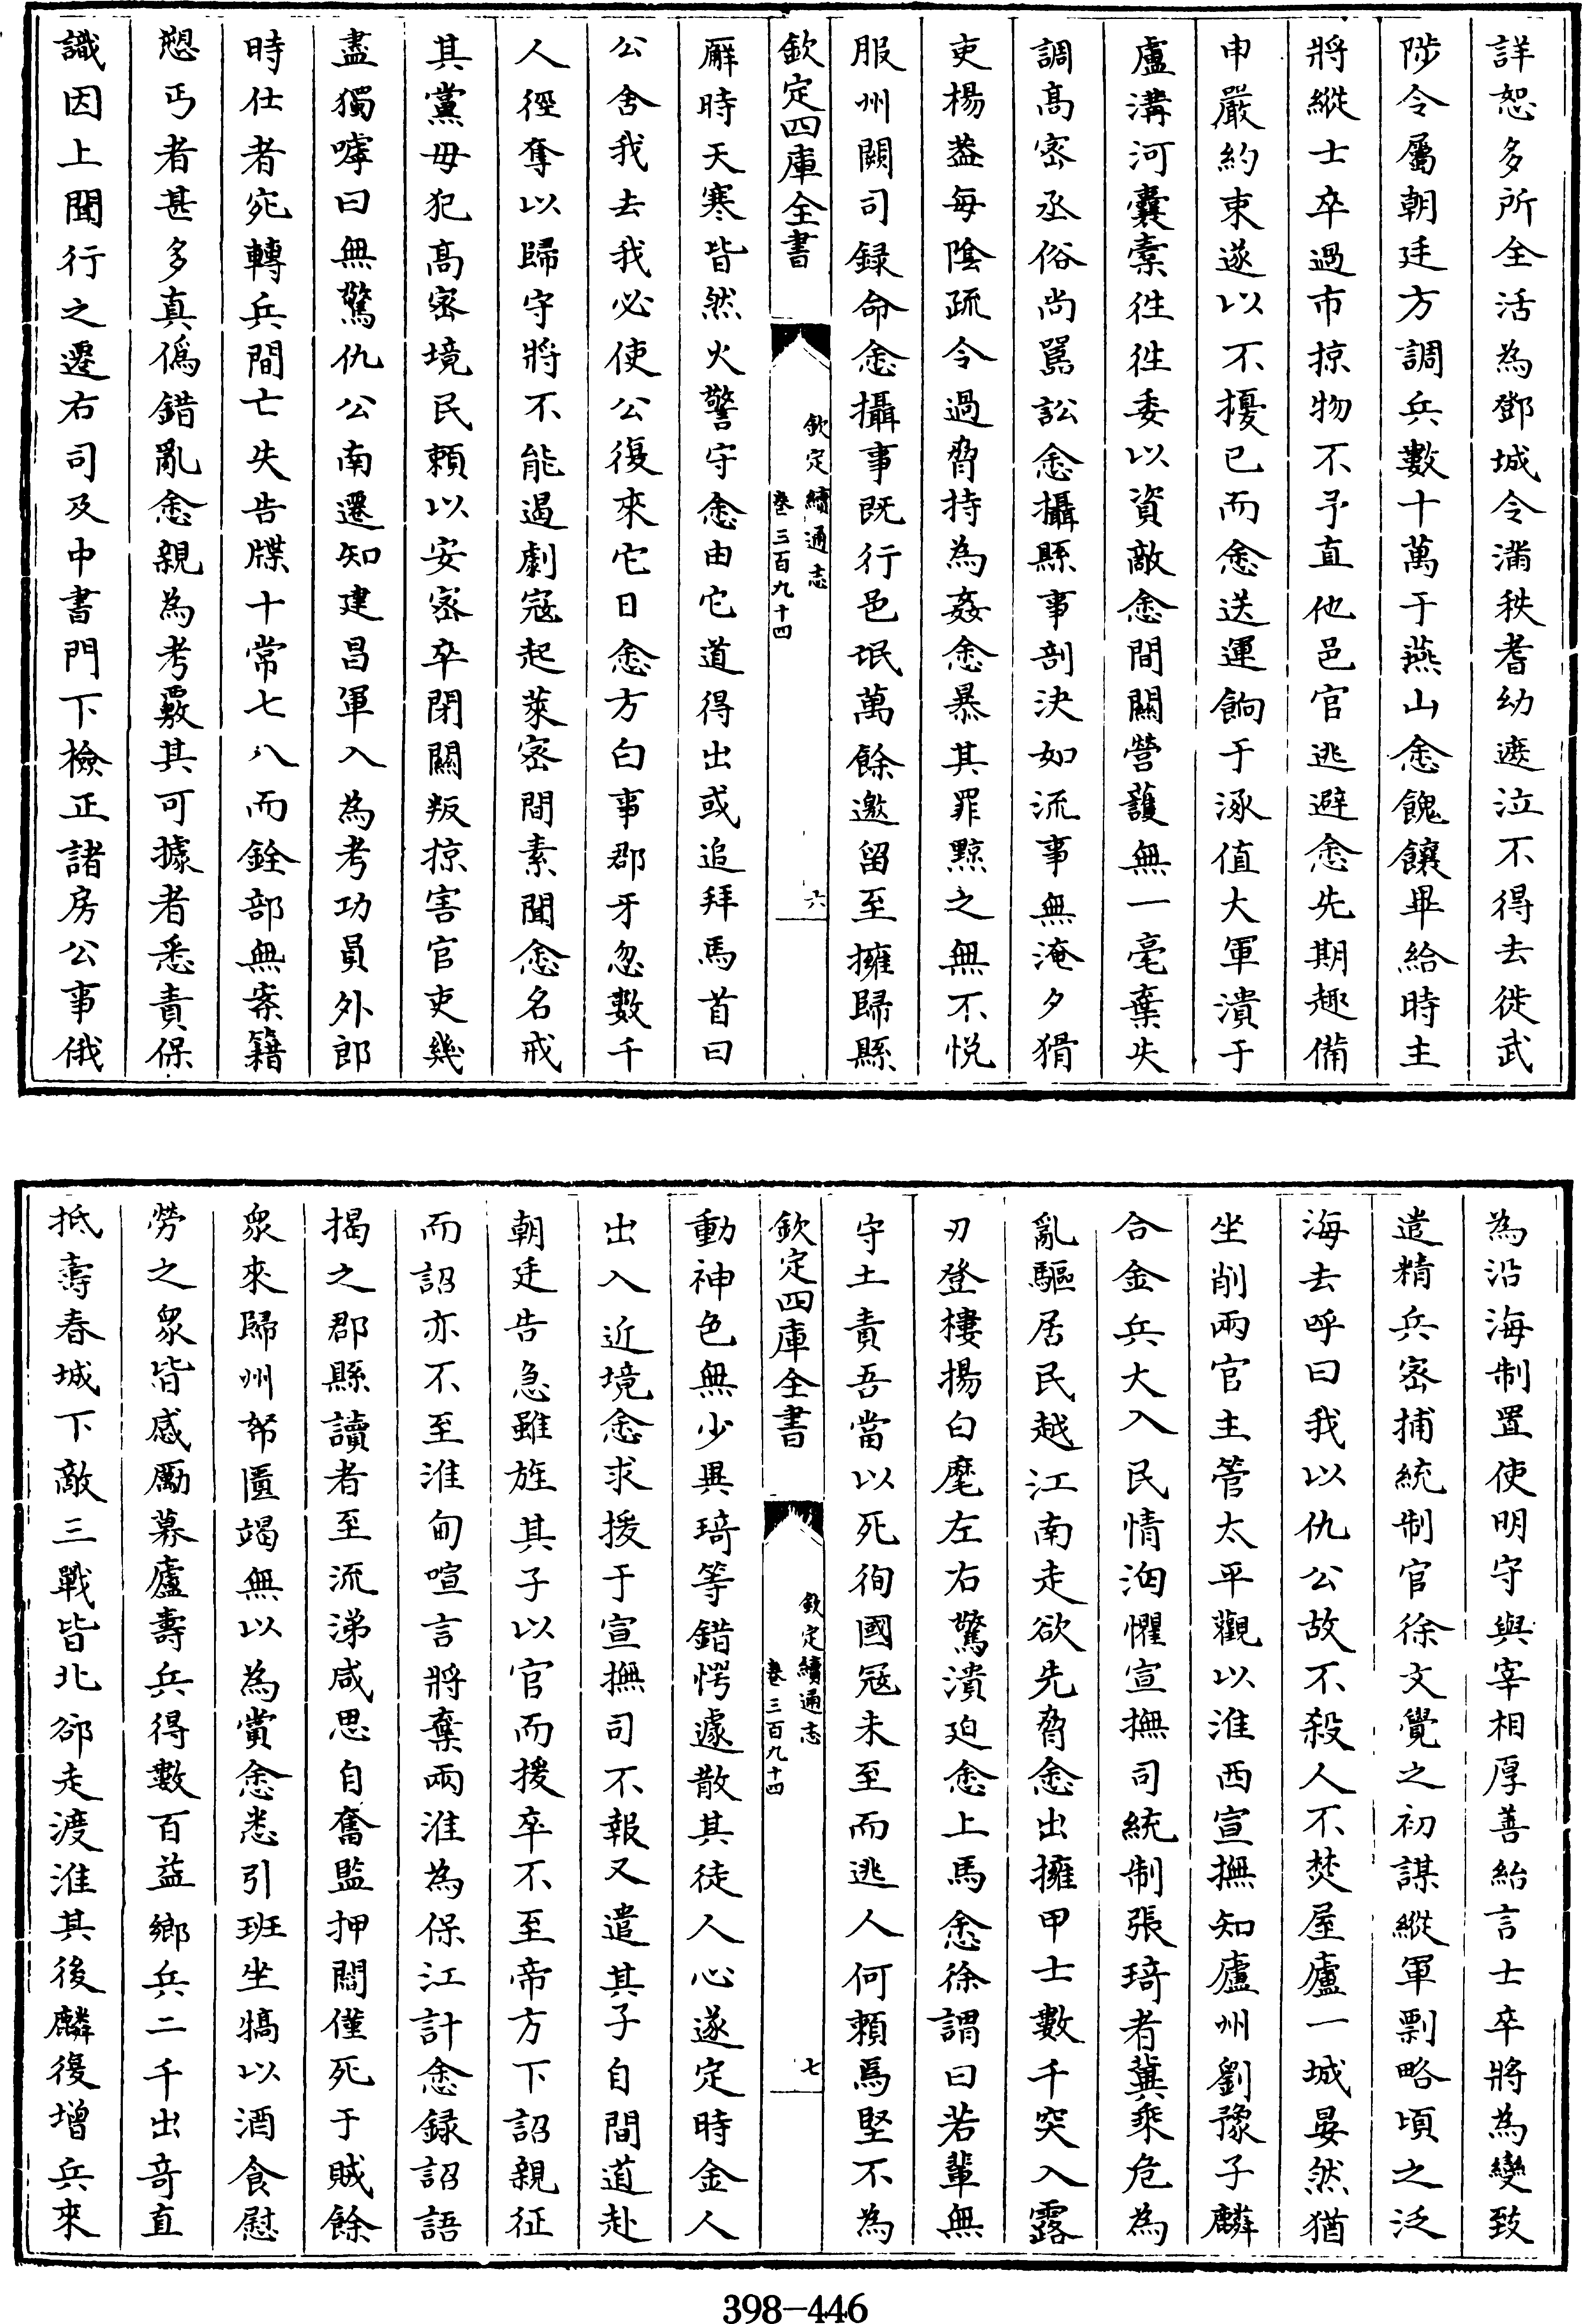 詳恕多所全活為鄧城令滿秩耆幼遮泣不得去徙武
陟令屬朝廷方調兵數十萬于燕山悆餽饟畢給時主
將縱士卒過市掠物不予直他邑官逃避悆先期趣備
申嚴約束遂以不擾已而悆送運餉于涿值大軍潰于
盧溝河囊橐徃徃委以資敵悆間關營護無一毫棄失
調高密丞俗尚嚚訟悆攝縣事剖決如流事無淹夕猾
吏楊蓋每陰疏令過脅持為姦悆暴其罪黥之無不悦
服州闕司録命悆攝事既行邑氓萬餘邀留至擁歸縣
欽定四庫全書
欽定續通志
卷三百九十四
六
廨時天寒皆然火警守悆由它道得出或追拜馬首曰
公舍我去我必使公復來它日悆方白事郡牙忽數千
人徑奪以歸守將不能遏劇冦起萊密間素聞悆名戒
其黨毋犯高密境民頼以安密卒閉關叛掠害官吏幾
盡獨嘑曰無驚仇公南遷知建昌軍入為考功員外郎
時仕者宛轉兵間亡失告牒十常七八而銓部無案籍
愬丐者甚多真偽錯亂悆親為考覈其可據者悉責保
識因上聞行之遷右司及中書門下檢正諸房公事俄
為沿海制置使明守與宰相厚善紿言士卒將為變致
遣精兵密捕統制官徐文覺之初謀縱軍剽略頃之泛
海去呼曰我以仇公故不殺人不焚屋廬一城晏然猶
坐削兩官主管太平觀以淮西宣撫知廬州劉豫子麟
合金兵大入民情洶懼宣撫司統制張琦者冀乘危為
亂驅居民越江南走欲先脅悆出擁甲士數千突入露
刃登樓揚白麾左右驚潰迫悆上馬悆徐謂曰若輩無
守土責吾當以死徇國冦未至而逃人何頼焉堅不為
欽定四庫全書
欽定續通志
卷三百九十四
七
動神色無少異琦等錯愕遽散其徒人心遂定時金人
出入近境悆求援于宣撫司不報又遣其子自間道赴
朝廷告急雖旌其子以官而援卒不至帝方下詔親征
而詔亦不至淮甸喧言將棄兩淮為保江計悆録詔語
揭之郡縣讀者至流涕咸思自奮監押閻僅死于賊餘
衆來歸州帑匱竭無以為賞悆悉引班坐犒以酒食慰
勞之衆皆感勵募廬壽兵得數百益鄉兵二千出奇直
抵壽春城下敵三戰皆北郤走渡淮其後麟復増兵來
398-446